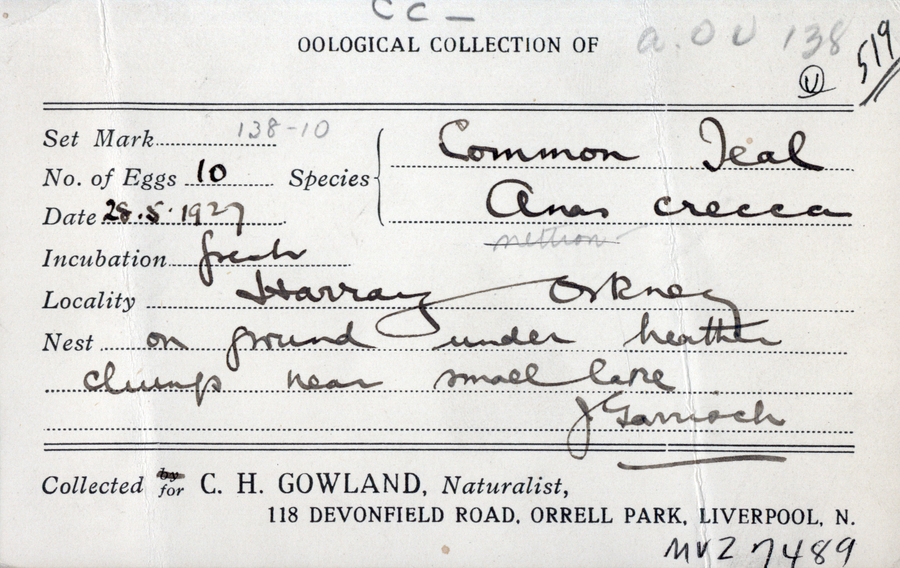 CC—
OOLOGICAL COLLECTION OF a.OU 138 519
U
Set Mark 138-10 Species Common Teal
No. of Eggs 10 Anas crecca
Date 28.5.1927 nettion
Incubation fresh
Locality Harray Orkney
Nest on ground under heather
clump near small lake
J Garrioch
Collected by for C. H. GOWLAND, Naturalist,
118 DEVONFIELD ROAD, ORRELL PARK, LIVERPOOL, N.
MVZ 7489